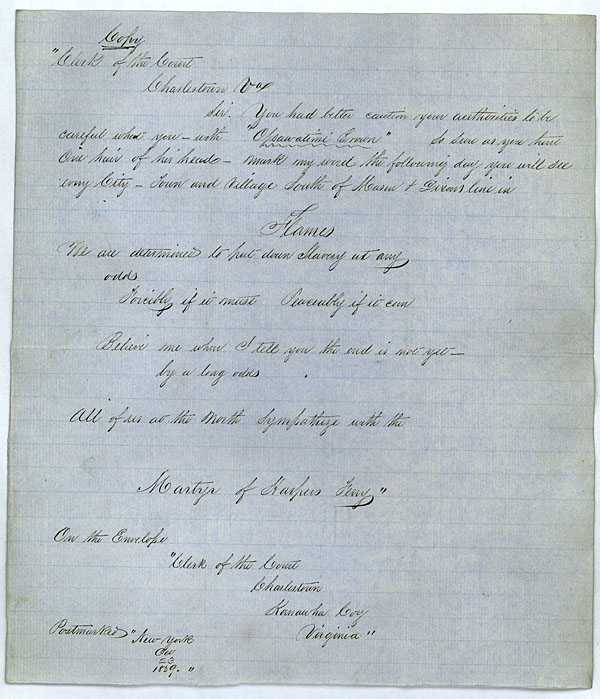 Copy
"Clerk of the Court
Charlestown Va
Sir. You had better caution your authorities to be
careful what you – with "Osawatimi Brown" So sure as you hurt
One hair of his head – mark my word the following day you will see
every City – Town and Village South of Mason & Dixons line in
Flames
We are determined to put down Slavery at any
odds
Forcibly if it must Peaceably if it can
Believe me when I tell you the end is not yet –
by a long odds
All of us at the North Sympathize with the
Martyr of Harpers Ferry"
On the Envelope
"Clerk of the Court
Charlestown
Kanawha Coy
Virginia"
Postmarked "New York
23
1859."